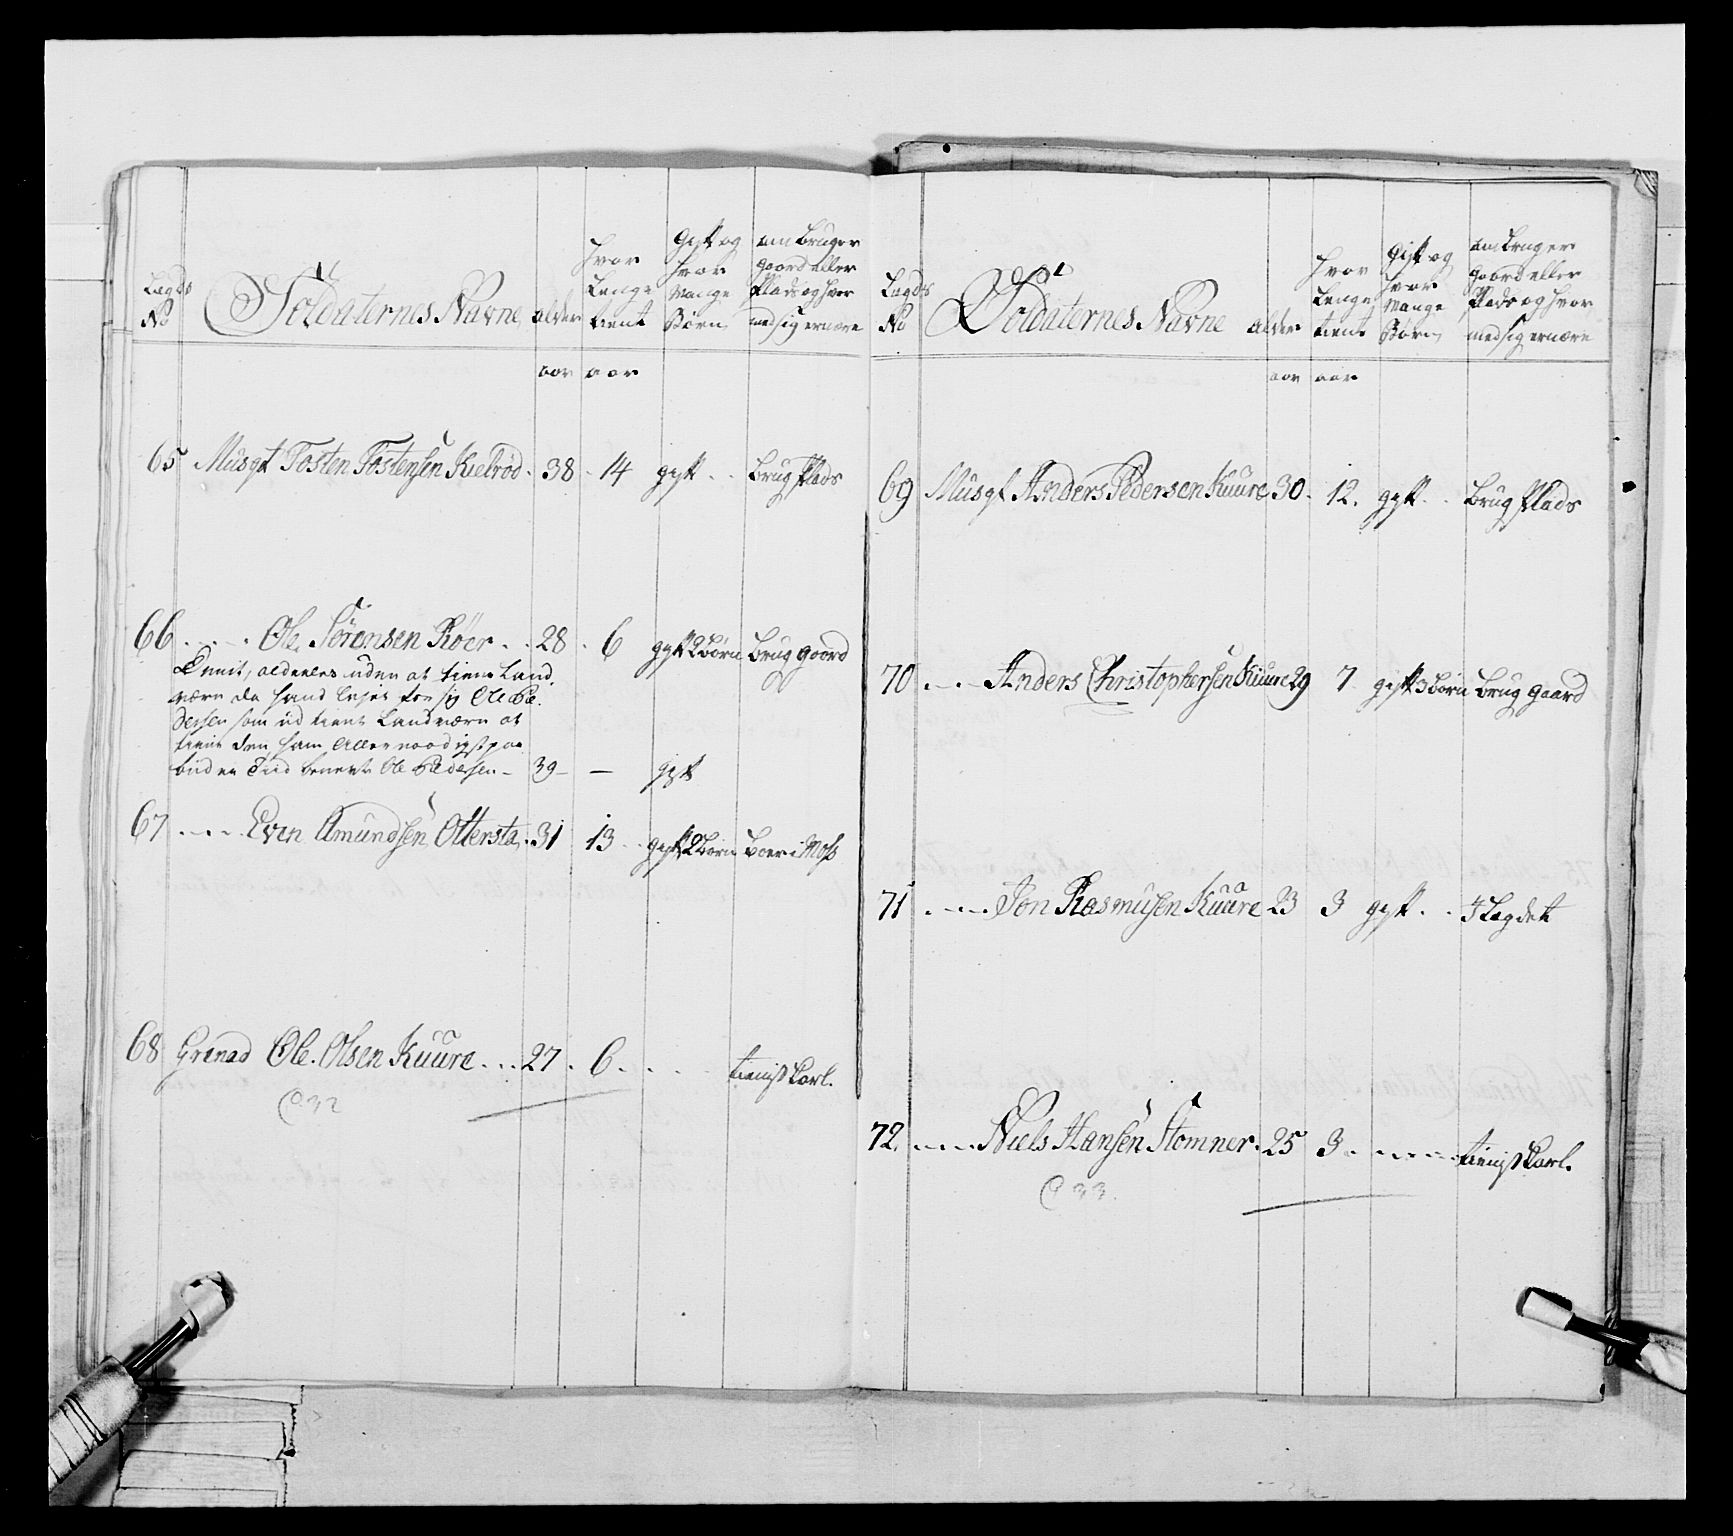 Lægds No
Soldaternes Navne
alder
hvor Lenge tient
Gift og hvor Mange Børn
om bruger gaard eller Plads og hvor med sig ernære
aar aar
65 Musqt Tosten Tostensen Kielrød 38 14 gift brug Plads
66 Ole Sørensen Röer 28 6 gift 2 börn brug gaard
uden at tiene Land
værn da hand lejer for sig Ole Pe
dersen som ud tient Landværn at
tiene den ham Aller naadigst paa
buden Tiid benevnt Ole Pedersen 39 — gift
67 Even Amundsen Ottersta 31 13 gift 2 börn boer i Moss
68 Grenad Ole Olsen Kuure 27 6 tienist Karl.
C 32
Lægds No
Soldaternes Navne
alder
hvor Lenge tient
Gift og hvor Mange Börn
om bruger gaard eller Plads og hvor med sig ernære
aar aar
69 Musqt Anders Pedersen Kuure 30 12 gift brug Plads
70 Anders Christophersen Kuure 29 7 gift 3 börn brug gaard
71 Jon Rasmusen Kuure 23 3 gift I Legdet
72 Niels Hansen Stomner 25 3 tienist Karl.
C 33